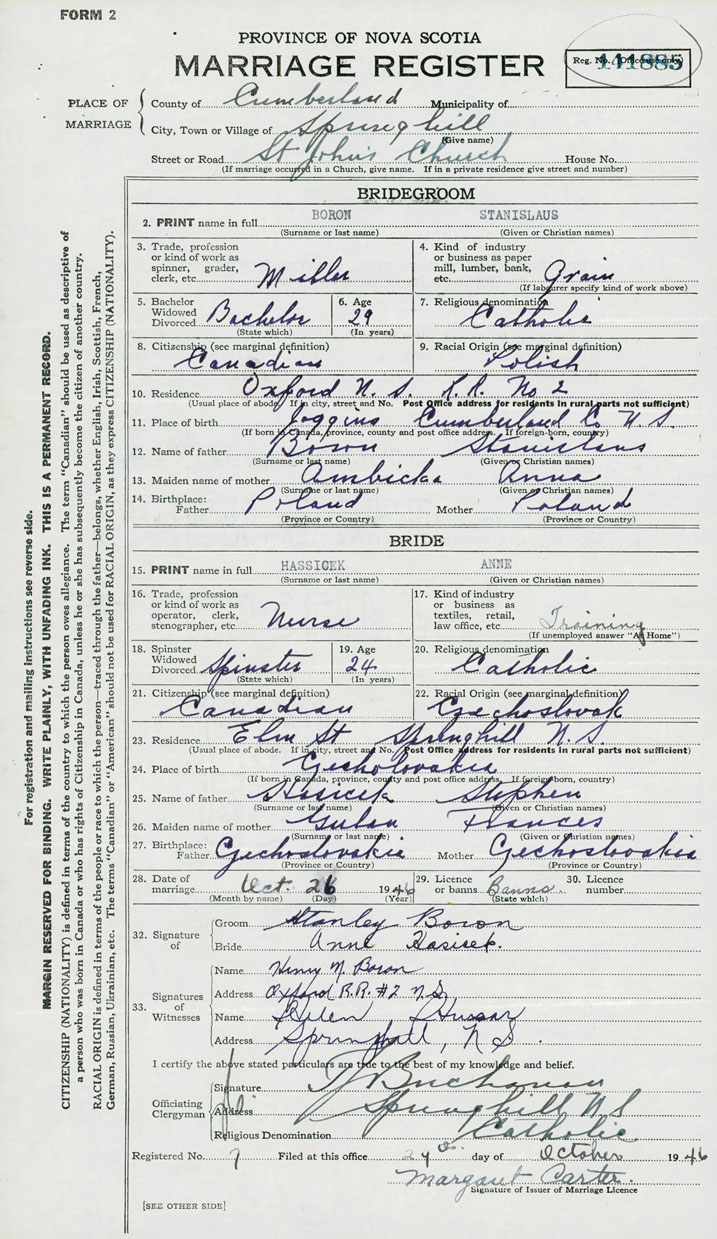 FORM 2
PROVINCE OF NOVA SCOTIA
MARRIAGE REGISTER
Reg. No. (Office use only) 111885
PLACE OF MARRIAGE
County of Cumberland Municipality of
City, Town or Village of Springhill
(Give name)
Street or Road St John's Church House No.
(If marriage occurred in a Church, give name. If in a private residence give street and number)
BRIDEGROOM
2. PRINT name in full BORON STANISLAUS
(Surname or last name) (Given or Christian names)
3. Trade, profession or kind of work as spinner, grader, clerk, etc. Miller
4. Kind of industry or business as paper mill, lumber, bank, etc. Grain
(If labourer specify kind of work above)
5. Bachelor Widowed Divorced Bachelor
(State which)
6. Age 29
(In years)
7. Religious denomination
Catholic
8. Citizenship (see marginal definition)
Canadian
9. Racial Origin (see marginal definition)
Polish
10. Residence Oxford N. S. R.R. No 2
(Usual place of abode. If in city, street and No. Post Office address for residents in rural parts not sufficient)
11. Place of birth Joggins Cumberland Co N.S.
(If born in Canada, province, county and post office address. If foreign-born, country)
12. Name of father Boron Stanislaus
(Surname or last name) (Given or Christian names)
13. Maiden name of mother Ambicka Anna
(Surname or last name) (Given or Christian names)
14. Birthplace: Father Poland Mother Poland
(Province or Country) (Province or Country)
BRIDE
15. PRINT name in full HASSICEK ANNE
(Surname or last name) (Given or Christian names)
16. Trade, profession or kind of work as operator, clerk, stenographer, etc. Nurse
17. Kind of industry or business as textiles, retail, law office, etc. Training
(If unemployed answer "At Home")
18. Spinster Widowed Divorced Spinster
(State which)
19. Age 24
(In years)
20. Religious denomination
Catholic
21. Citizenship (see marginal definition)
Canadian
22. Racial Origin (see marginal definition)
Czechoslovak
23. Residence Elm St Springhill N.S.
(Usual place of abode. If in city, street and No. Post Office address for residents in rural parts not sufficient)
24. Place of birth Czecholovakia
(If born in Canada, province, county and post office address. If foreign born, country)
25. Name of father Hasicek Stephen
(Surname or last name) (Given or Christian names)
26. Maiden name of mother Frances
(Surname or last name) (Given or Christian names)
27. Birthplace: Father Czechoslovakia Mother Czechoslovakia
(Province or Country) (Province or Country)
28. Date of marriage Oct. 26 1946
(Month by name) (Day) (Year)
29. Licence or banns Banns
(State which)
30. Licence number
32. Signature of
Groom Stanley Boron
Bride Anne Hasicek.
33. Signatures of Witnesses
Name Henry M. Boron
Address Oxford R.R. #2 N.S.
Name Helen Hussar
Address Springhill, N S.
I certify the above stated particulars are true to the best of my knowledge and belief.
Officiating Clergyman
Signature Buchanan
Address Springhill N S
Religious Denomination Catholic
Registered No. 7 Filed at this office day of October 1946
Margaret Carter
Signature of Issuer of Marriage Licence
[SEE OTHER SIDE]
For registration and mailing instructions see reverse side.
MARGIN RESERVED FOR BINDING. WRITE PLAINLY, WITH UNFADING INK. THIS IS A PERMANENT RECORD.
CITIZENSHIP (NATIONALITY) is defined in terms of the country to which the person owes allegiance. The term "Canadian" should be used as descriptive of
a person who was born in Canada or who has rights of Citizenship in Canada, unless he or she has subsequently become the citizen of another country.
RACIAL ORIGIN is defined in terms of the people or race to which the person—traced through the father—belongs, whether English, Irish, Scottish, French,
German, Russian, Ukrainian, etc. The terms "Canadian" or "American" should not be used for RACIAL ORIGIN, as they express CITIZENSHIP (NATIONALITY).